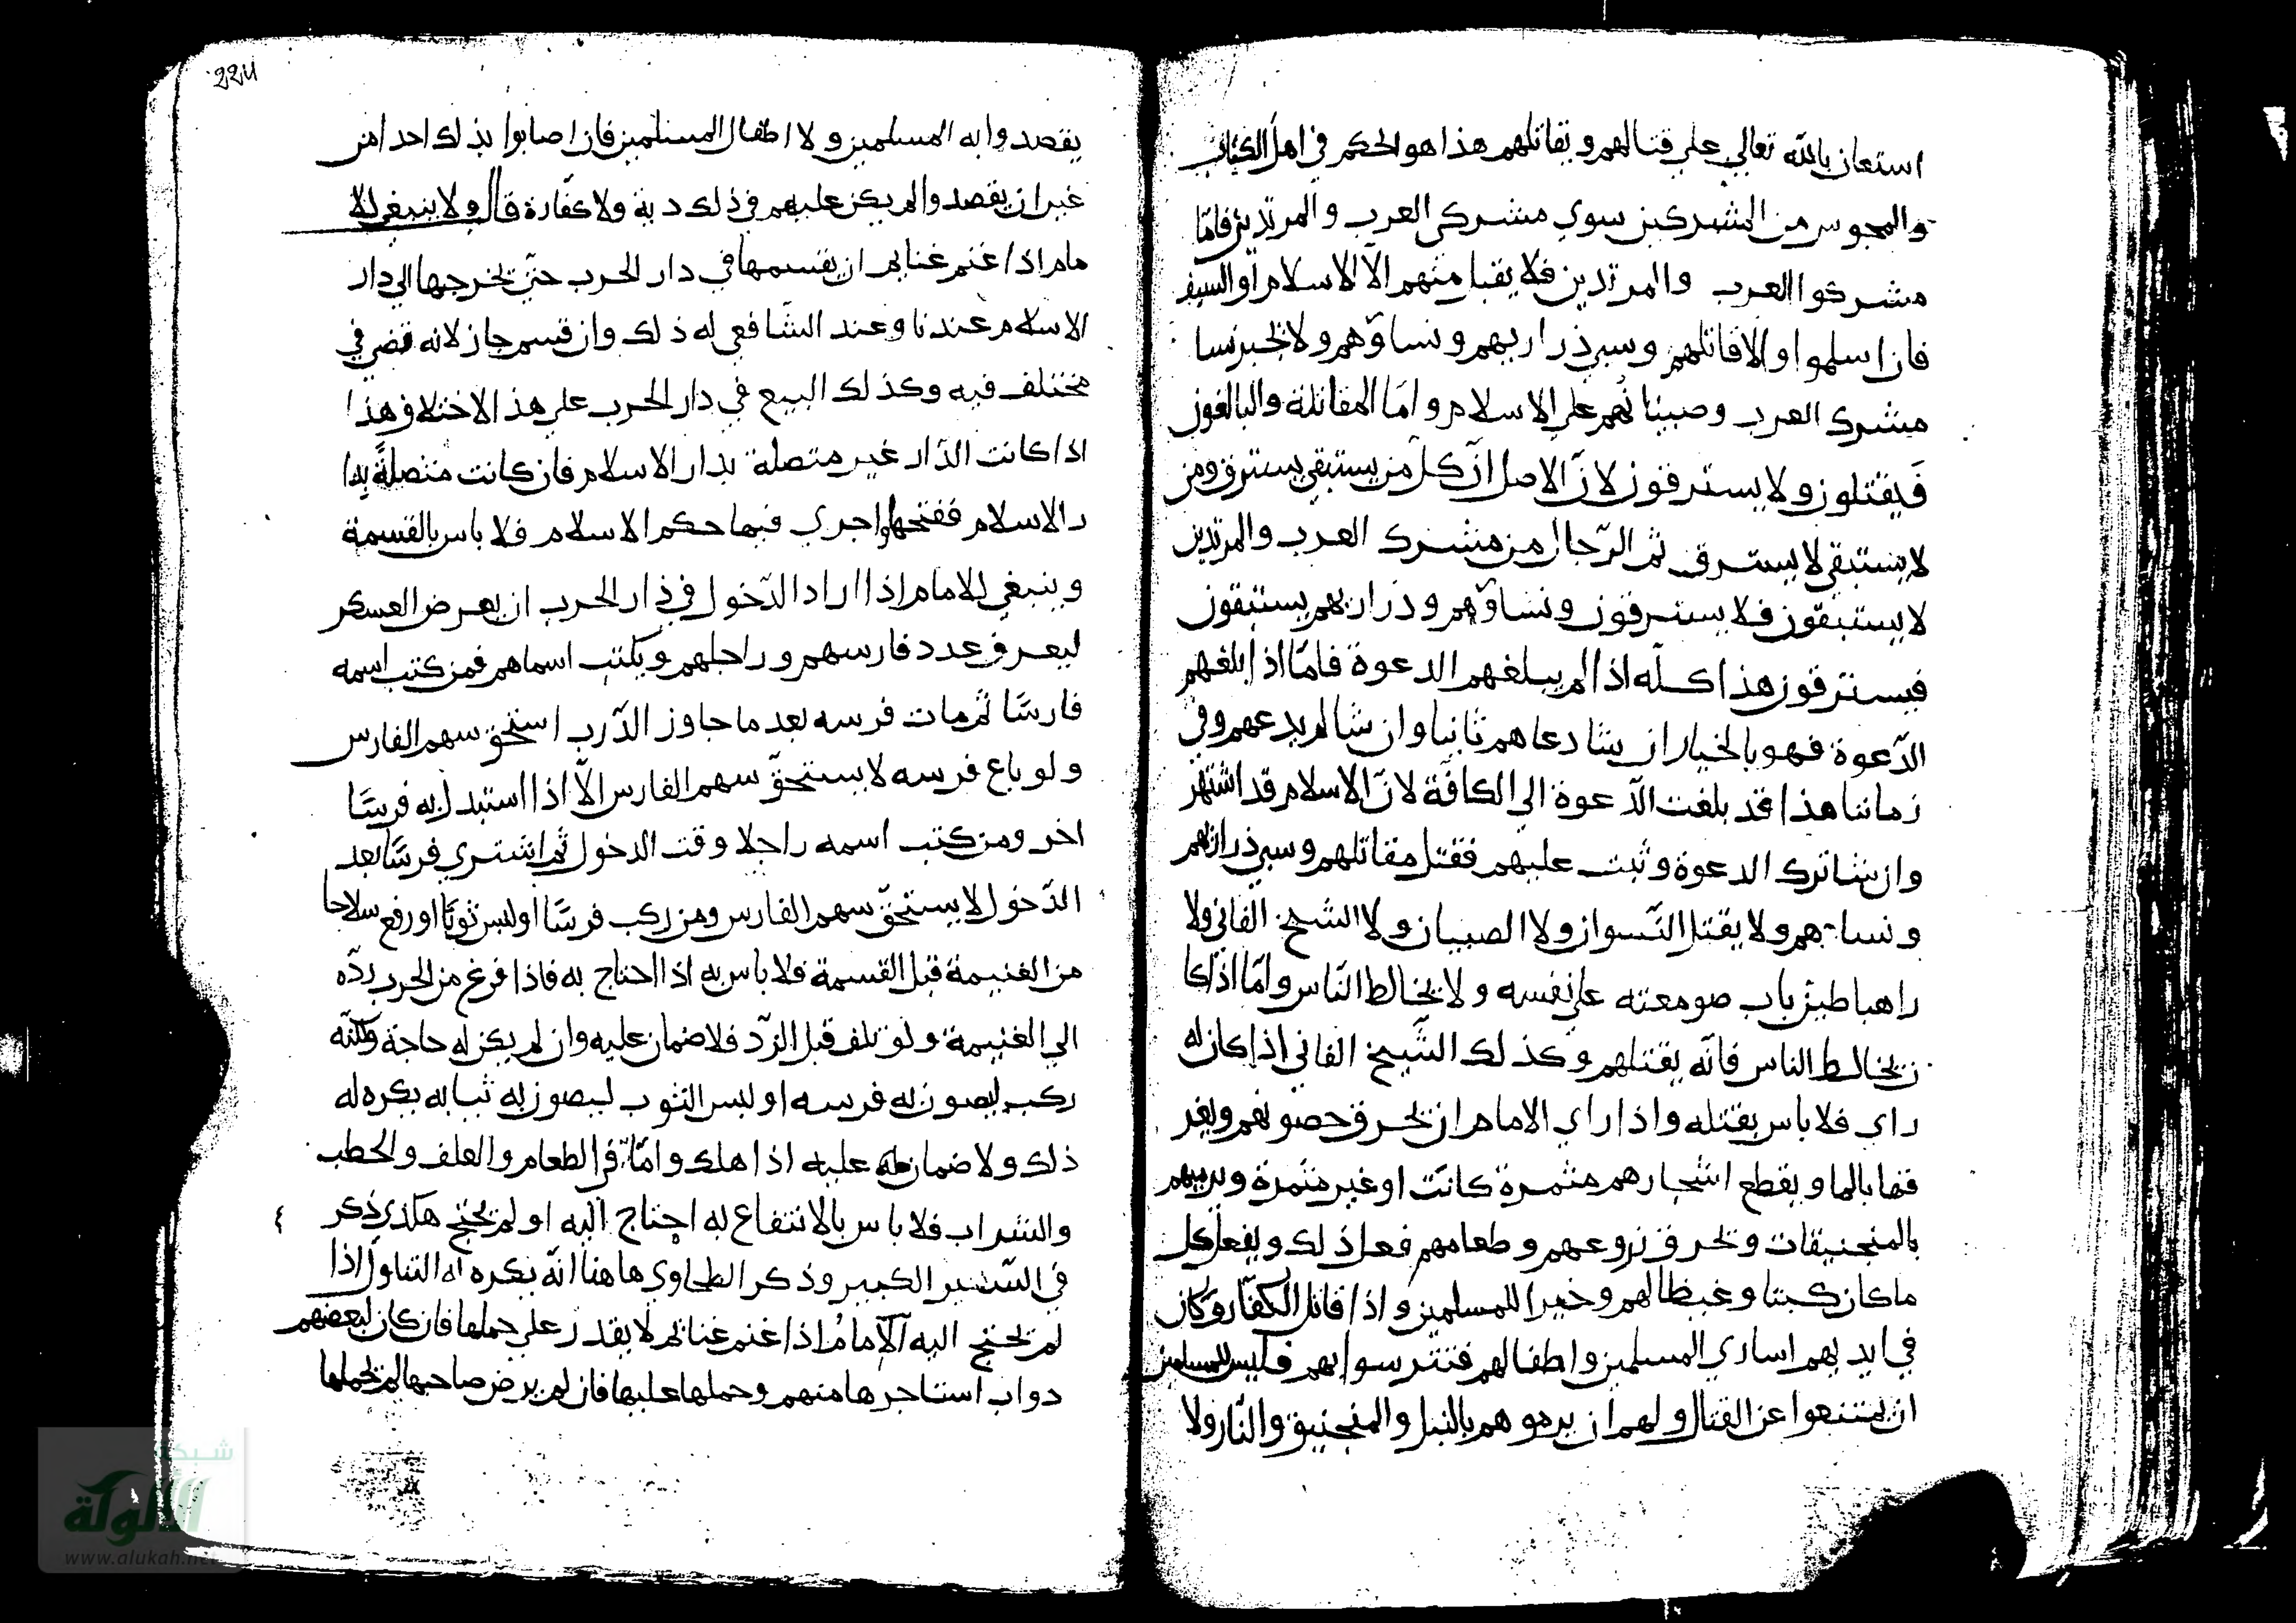 استعان بالله تعالي علي قتالهم ويقاتلهم هذا هو الحكم في اهل الكتاب
والمجوس من المشركين سوي مشركى العرب والمرتدين فامّا
مشركوا العرب والمرتدين فلا يقبل منهم الّا الاسلام او السيف
فان اسلموا والا قاتلهم وسبي ذراريهم ونساؤهم ولا تجبر نسا
مشرك العرب وصبيانهم علي الاسلام وامّا المقاتلة والبالغون
فيقتلون ولا يسترقون لانّ الاصل انّ كل من يستبقي يسترق ومن
لا يستبقي لا يسترق ثم الرّجال من مشرك العرب والمرتدين
لا يستبقون فلا يسترقون ونساؤهم وذراريهم يستبقون
فيسترقون هذا كلّه اذا لم يبلغهم الدعوة فامّا اذا بلغهم
الدّعوة فهو بالخيار ان شا دعاهم ثانيا وان شا لم يدعهم وفي
زماننا هذا قد بلغت الدّعوة الي الكافّة لانّ الاسلام قد اشتهر
وان شا ترك الدعوة وثبت عليهم فقتل مقاتلهم وسبي ذراريهم
ونساهم ولا يقتل النّسوان ولا الصبيان ولا الشيخ الفاني ولا
راهبا طين باب صومعته علي نفسه ولا يخالط النّاس وامّا اذا كا
ن يخالط الناس فانّه يقتلهم وكذلك الشّيخ الفاني اذا كان له
راي فلا باس بقتله واذا راي الامام ان يخرق حصونهم ويغر
قها بالما ويقطع اشجارهم مثمرة كانت او غير مثمرة ويرميهم
بالمنجنيقات ويخرق زروعهم وطعامهم فعل ذلك ويفعل كل
ما كان كبتا وغيظا لهم وخيرا للمسلمين واذا قاتل الكفّار وكان
في ايديهم اساري المسلمين واطفالهم فتترسوا بهم فليس للمسلمين
ان يمتنعوا عن القتال ولهم ان يرموهم بالنبل والمنجنيق والنّار ولا
224
يقصدوا به المسلمين ولا اطفال المسلمين فان اصابوا بذلك احدا من
غير ان يقصدوا لم يكن عليهم في ذلك دية ولا كفّارة قال ولا ينبغي للا
مام اذا غنم غنايم ان يقسمها في دار الحرب حتّي يخرجها الي دار
الاسلام عندنا وعند الشافعي له ذلك وان قسم جاز لانه قضي في
مختلف فيه وكذلك البيع في دار الحرب علي هذا الاختلاف وهذا
اذا كانت الدّار غير متصلة بدار الاسلام فان كانت متصلةً بدا
ر الاسلام ففتحها واجري فيها حكم الاسلام فلا باس بالقسمة
وينبغي للامام اذا اراد الدّخول في دار الحرب ان يعرض العسكر
ليعرف عدد فارسهم وراجلهم ويكتب اسماهم فمن كتب اسمه
فارسًا ثم مات فرسه بعد ما جاوز الدّرب استحق سهم الفارس
ولو باع فرسه لا يستحقّ سهم الفارس الّا اذا استبدل به فرسًا
اخر ومن كتب اسمه راجلا وقت الدخول ثم اشتري فرسًا بعد
الدّخول لا يستحقّ سهم الفارس ومن ركب فرسًا او لبس ثوبًا او رفع سلاحا
من الغنيمة قبل القسمة فلا باس به اذا احتاج به فاذا فرغ من الحرب ردّه
الي الغنيمة ولو تلف قبل الرّد فلا ضمان عليه وان لم يكن له حاجة ولكنّه
ركب ليصون به فرسه او لبس الثوب ليصون به ثيابه يكره له
ذلك ولا ضمان عليه اذا هلك وامّا في الطعام والعلف والحطب
والشراب فلا باس بالانتفاع به احتاج اليه او لم يحتج هكذي ذكر
في السّير الكبير وذكر الطحاوي هاهنا انّه يكره له التناول اذا
لم يحتج اليه الامامُ اذا غنم غنايم لا يقدر علي حملها فان كان لبعضهم
دواب استاجرها منهم وحملها عليها فان لم يرض صاحبها لم يحملها
شبكة
الألوكة
www.alukah.net